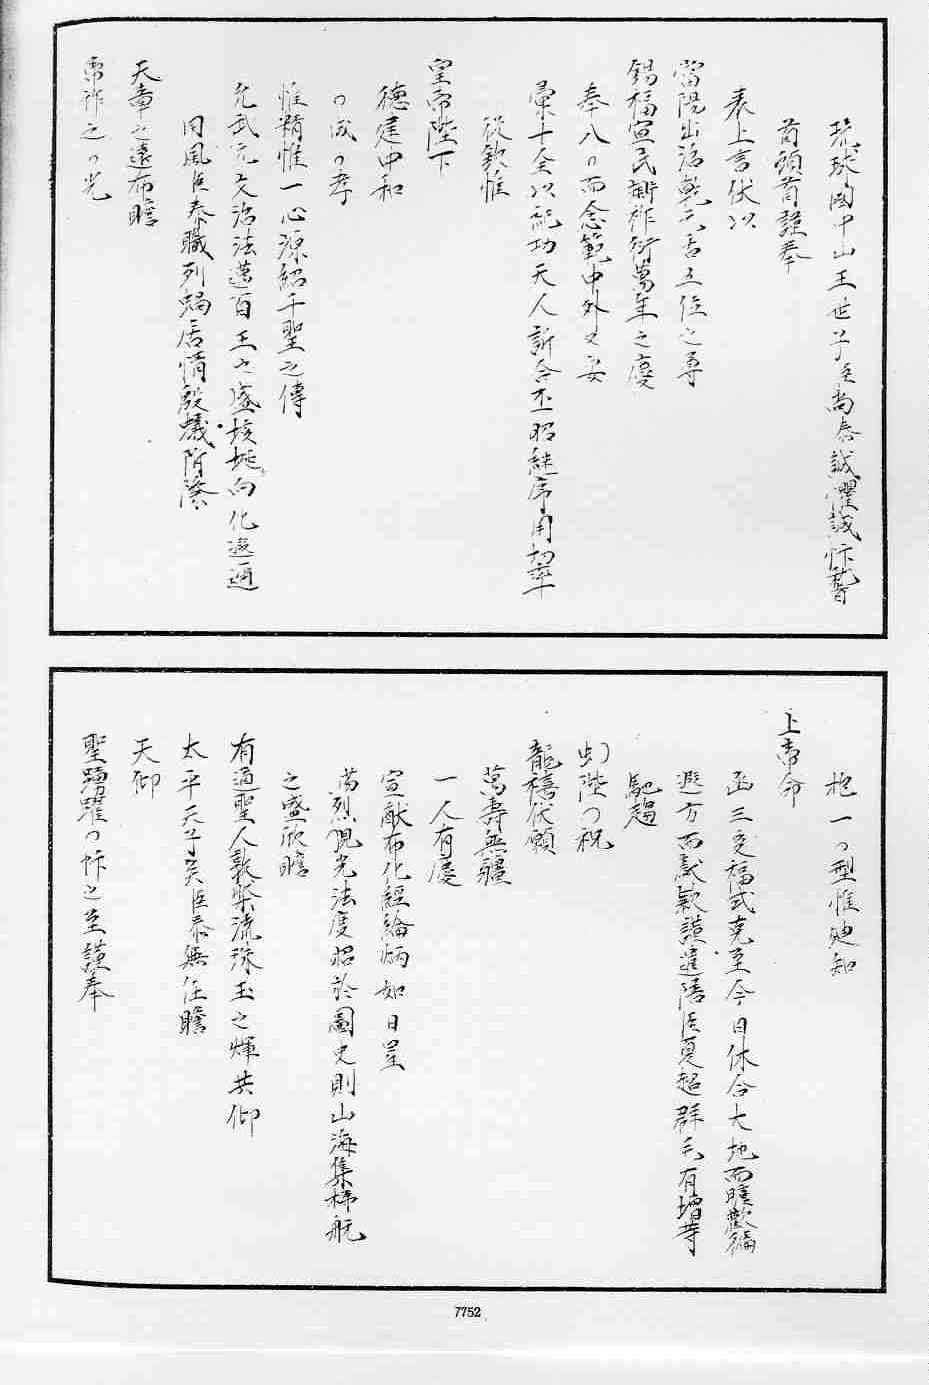 琉球國中山王世子臣尚泰誠懽誠忭稽
首頓首謹奉
表上言伏以
當陽出治乾元居五位之尊
錫福宣民新祚衍萬年之慶
奉八而念範中外乂安
彙十全以紀功天人訢合丕昭繼序用切率
從欽惟
皇帝陛下
德建中和
成孝
惟精惟一心源紹千聖之傳
允武允文治法邁百王之盛垓埏向化遐邇
同風臣泰職列蝸居情殷蟻附際
天章之遠布瞻
帝祚之光
抱一型惟廸知
上帝命
函三受福式克至今日休合大地而瞻歡徧
遐方而獻欵謹遣陪臣夏超群毛有增等
馳趨
虯陛祝
龍禧伏願
萬壽無疆
一人有慶
宣猷布化經綸炳如日星
蕩烈覲光法度昭於圖史則山海集梯航
之盛欣瞻
有道聖人敦槃流珠玉之輝共仰
太平天子矣臣泰無任瞻
天仰
聖踴躍忭之至謹奉
7752